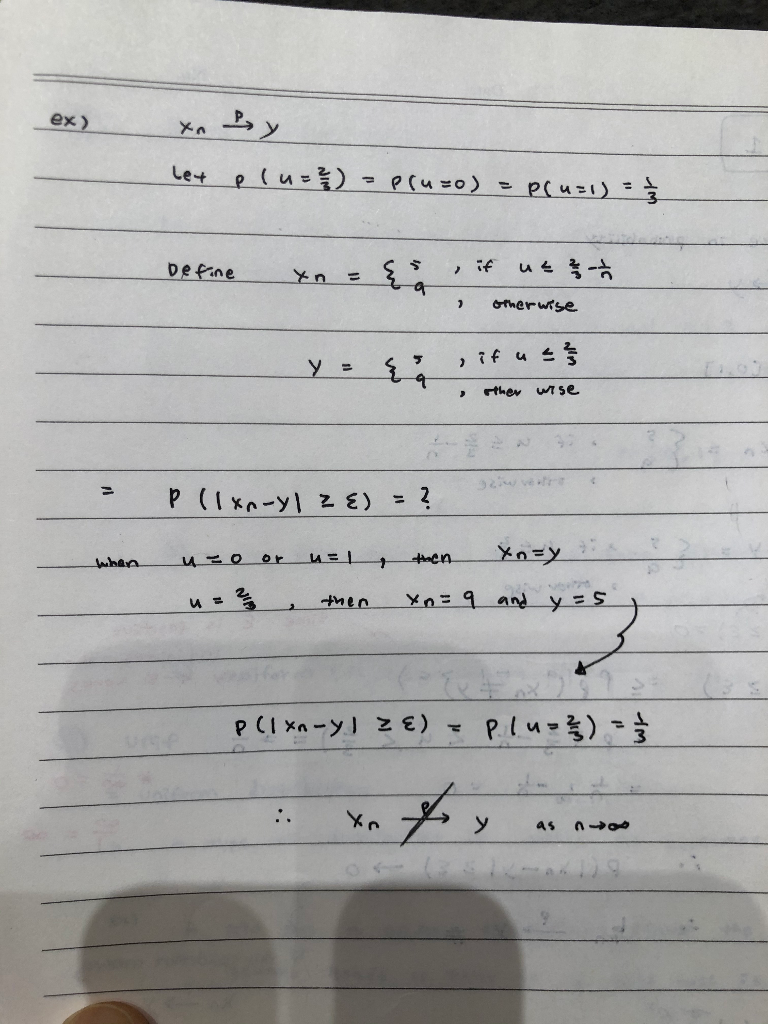 ex) Xn →ᵖ Y
Let P(u=2/3) = P(u=0) = P(u=1) = 1/3
Define Xn = { 5 , if u ≤ 2/3 - 1/n
9 , otherwise
Y = { 5 , if u ≤ 2/3
9 , other wise
= P(|Xn-Y| ≥ ε) = ?
when u=0 or u=1 , then Xn=Y
u = 2/3 , then Xn=9 and Y=5
P(|Xn-Y| ≥ ε) = P(u=2/3) = 1/3
∴ Xn ↛ᵖ Y as n→∞